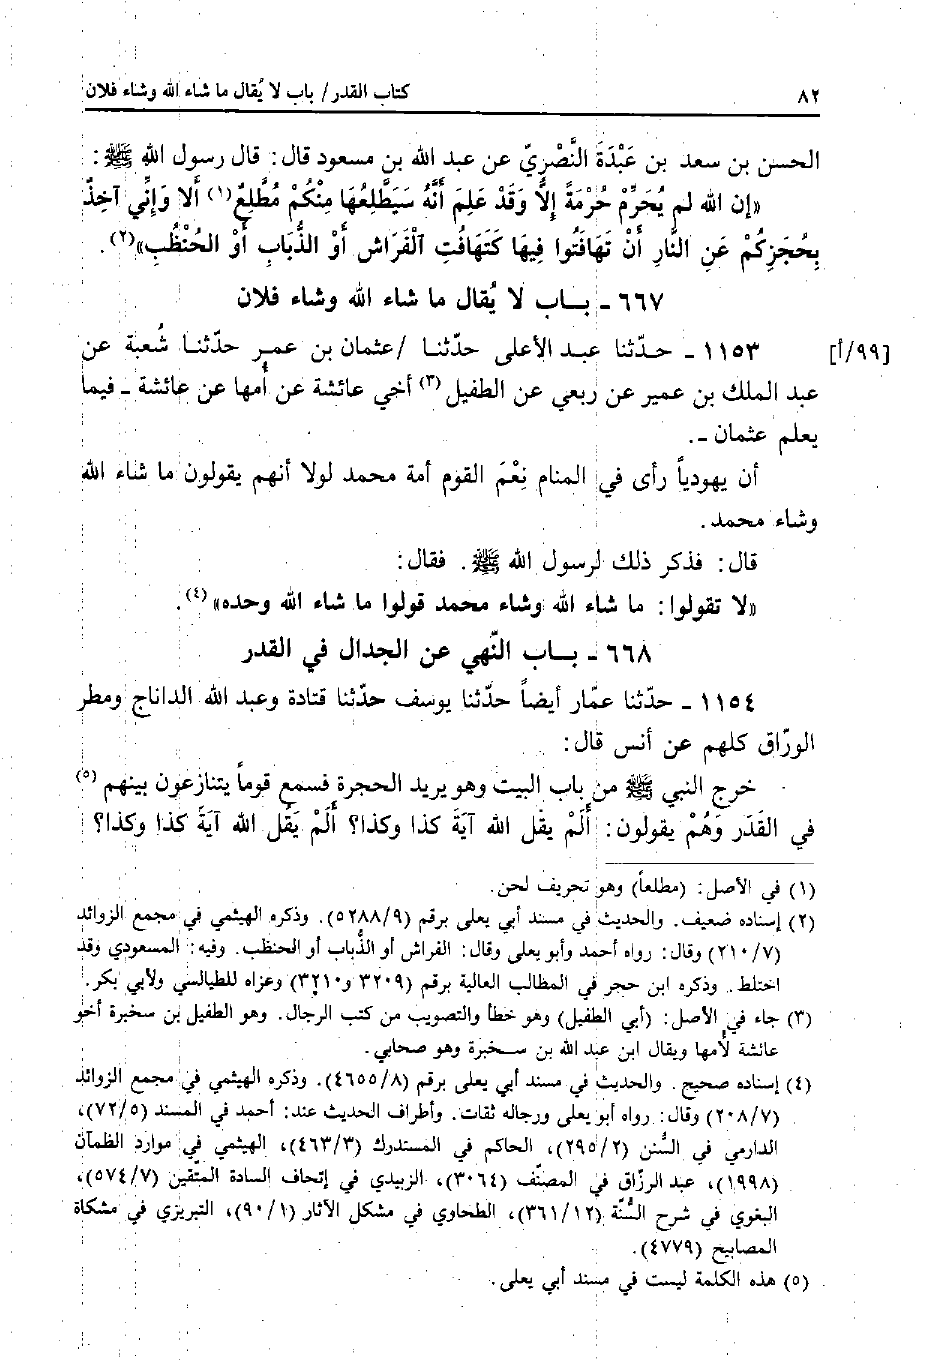 ٨٢
كتاب القدر/ باب لا يُقال ما شاء الله وشاء فلان
الحسن بن سعد بن عَبْدَةَ النَّصْرِيّ عن عبد الله بن مسعود قال: قال رسول الله ﷺ:
«إن الله لم يُحَرِّمْ حُرْمَةً إِلاَّ وَقَدْ عَلِمَ أَنَّهُ سَيَطَّلِعُهَا مِنْكُمْ مُطَّلِعٌ(١) ألا وَإِنِّي آخِذٌ
بِحُجَزِكُمْ عَنِ النَّارِ أَنْ تَهَافَتُوا فِيهَا كَتَهَافُتِ الْفَرَاشِ أَوْ الذُّبَابِ أَوْ الحُنْظُبِ»(٢).
٦٦٧ - بـاب لا يُقال ما شاء الله وشاء فلان
[٩٩/أ]
١١٥٣ - حدّثنا عبد الأعلى حدّثنا /عثمان بن عمر حدّثنا شُعبة عن
عبد الملك بن عمير عن ربعي عن الطفيل(٣) أخي عائشة عن أمها عن عائشة - فيما
يعلم عثمان -.
أن يهودياً رأى في المنام نِعْمَ القوم أمة محمد لولا أنهم يقولون ما شاء الله
وشاء محمد.
قال: فذكر ذلك لرسول الله ﷺ. فقال:
«لا تقولوا: ما شاء الله وشاء محمد قولوا ما شاء الله وحده»(٤).
٦٦٨ - بـاب النّهي عن الجدال في القدر
١١٥٤ - حدّثنا عمّار أيضاً حدّثنا يوسف حدّثنا قتادة وعبد الله الداناج ومطر
الورّاق كلهم عن أنس قال:
خرج النبي ﷺ من باب البيت وهو يريد الحجرة فسمع قوماً يتنازعون بينهم(٥)
في القَدَر وَهُمْ يقولون: أَلَمْ يقل الله آيَةَ كذا وكذا؟ أَلَمْ يَقُل الله آيَةَ كذا وكذا؟
(١) في الأصل: (مطلعاً) وهو تحريف لحن.
(٢) إسناده ضعيف. والحديث في مسند أبي يعلى برقم (٥٢٨٨/٩). وذكره الهيثمي في مجمع الزوائد
(٢١٠/٧) وقال: رواه أحمد وأبو يعلى وقال: الفراش أو الذُّباب أو الحنظب. وفيه: المسعودي وقد
اختلط. وذكره ابن حجر في المطالب العالية برقم (٣٢٠٩ و٣٢١٠) وعزاه للطيالسي ولأبي بكر.
(٣) جاء في الأصل: (أبي الطفيل) وهو خطأ والتصويب من كتب الرجال. وهو الطفيل بن سخبرة أخو
عائشة لأمها ويقال ابن عبد الله بن سخبرة وهو صحابي.
(٤) إسناده صحيح. والحديث في مسند أبي يعلى برقم (٤٦٥٥/٨). وذكره الهيثمي في مجمع الزوائد
(٢٠٨/٧) وقال: رواه أبو يعلى ورجاله ثقات. وأطراف الحديث عند: أحمد في المسند (٧٢/٥)،
الدارمي في السُّنن (٢٩٥/٢)، الحاكم في المستدرك (٤٦٣/٣)، الهيثمي في موارد الظمآن
(١٩٩٨)، عبد الرزّاق في المصنّف (٣٠٦٤)، الزبيدي في إتحاف السادة المتّقين (٥٧٤/٧)،
البغوي في شرح السُّنّة (٣٦١/١٢)، الطحاوي في مشكل الآثار (٩٠/١)، التبريزي في مشكاة
المصابيح (٤٧٧٩).
(٥) هذه الكلمة ليست في مسند أبي يعلى.